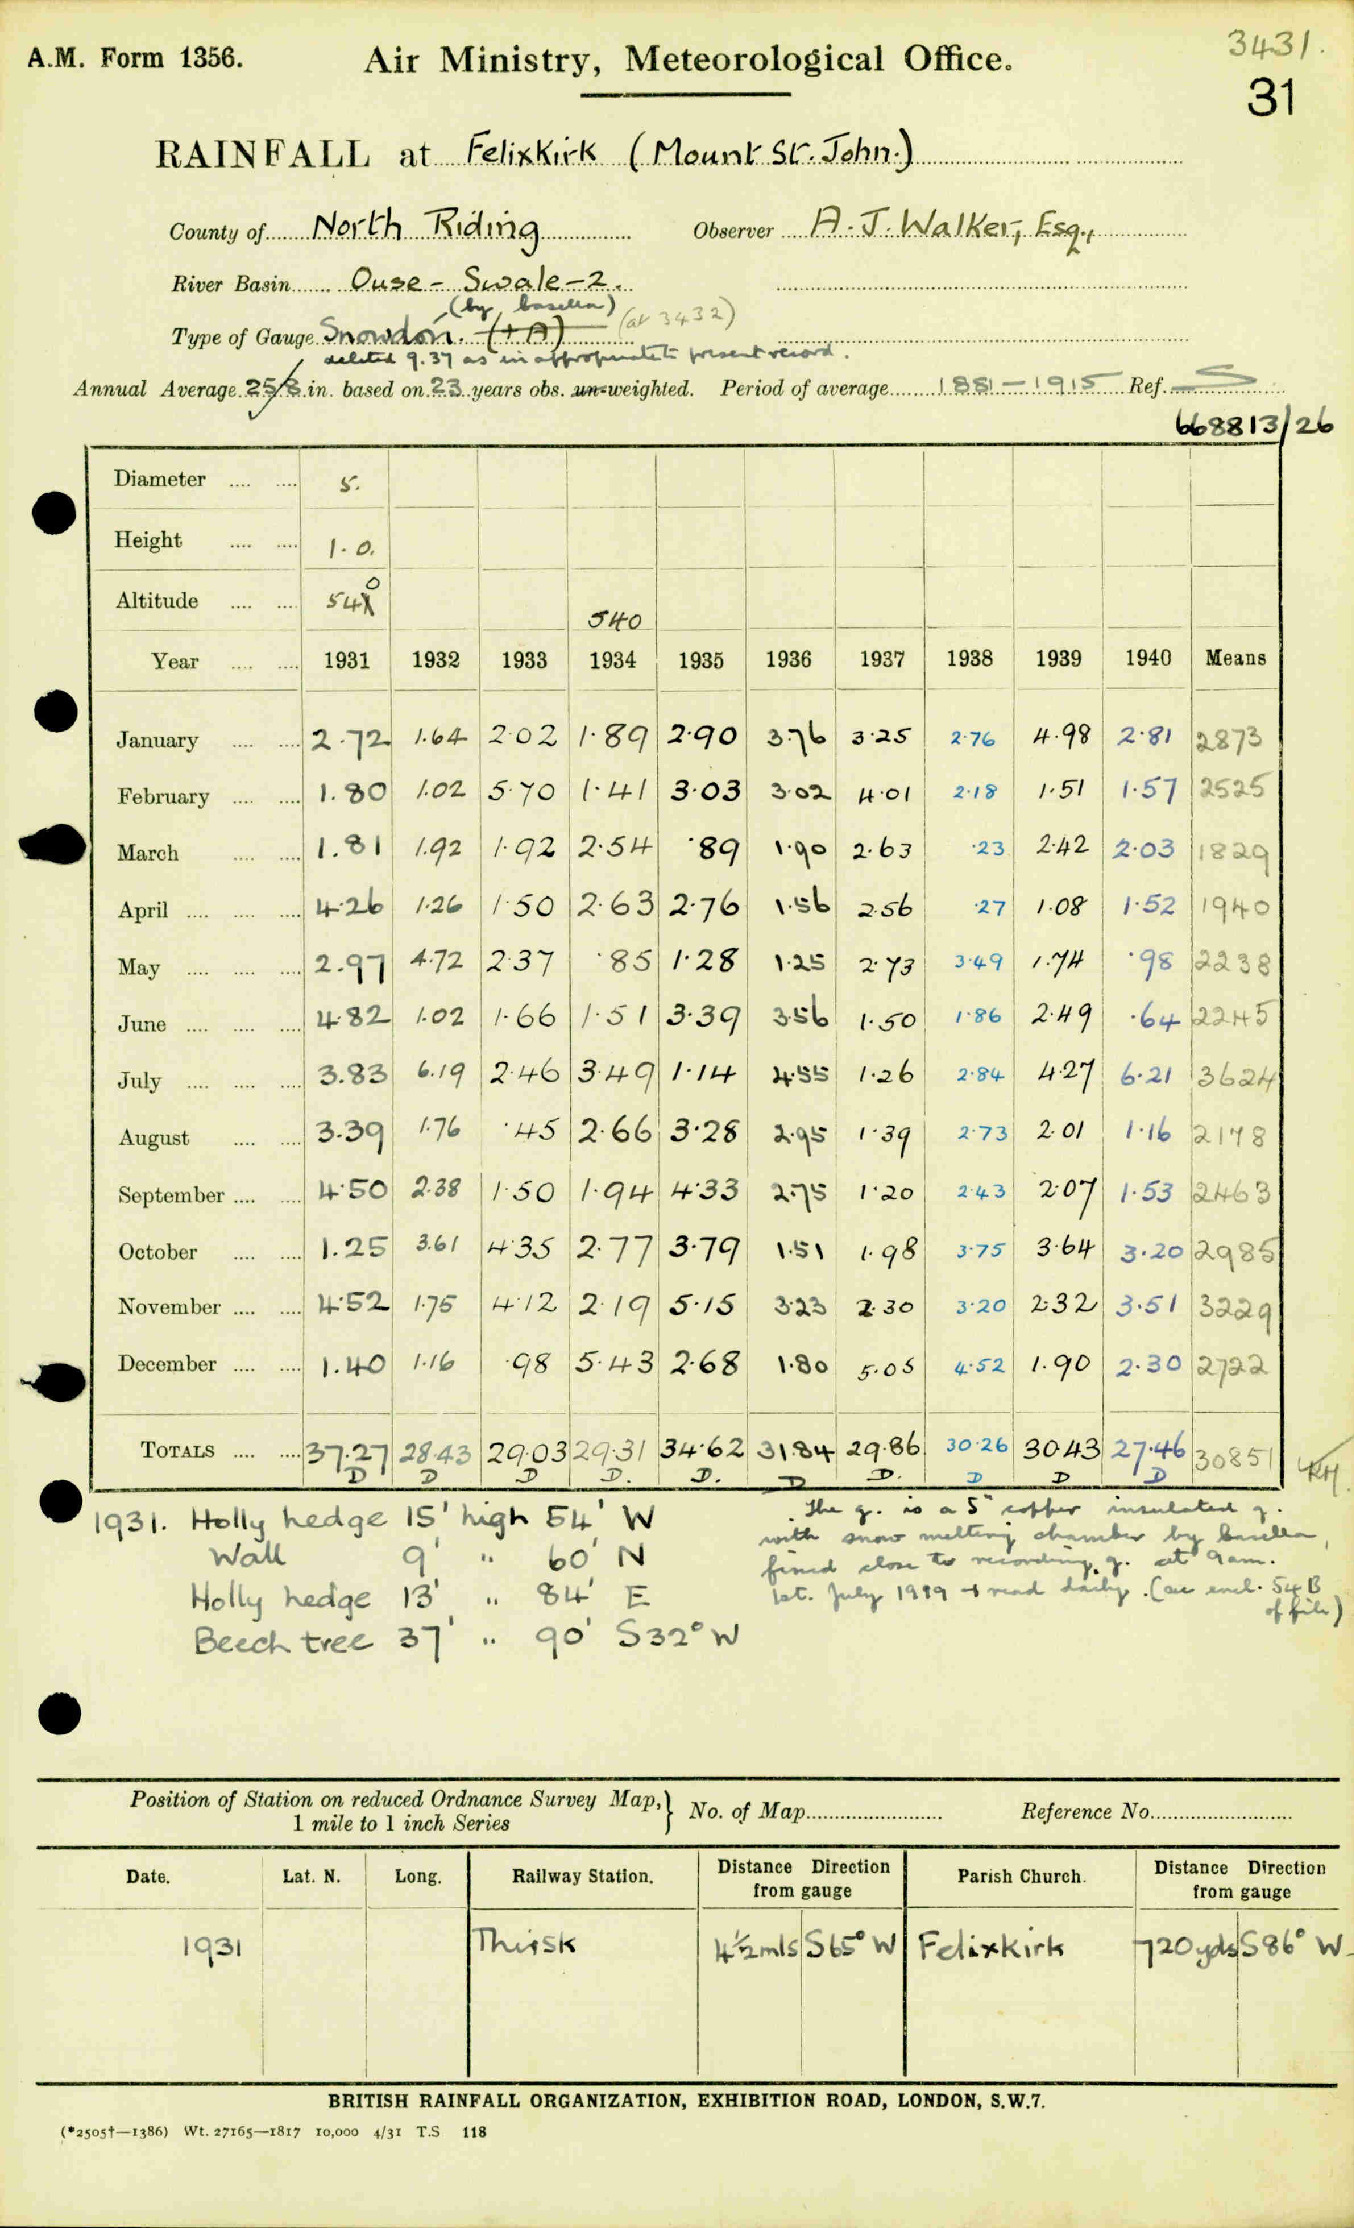 A.M. Form 1356.
Air Ministry, Meteorological Office.
3431.
31
RAINFALL at Felixkirk (Mount St. John.)
County of North Riding Observer A. J. Walker, Esq.,
River Basin Ouse - Swale - 2.
(by Casella)
Type of Gauge Snowdon. (+A) (at 3432)
deleted 9.37 as inappropriate to present record.
Annual Average 25.8 in. based on 23 years obs. un-weighted. Period of average 1881-1915 Ref. S
668813/26
Diameter 5.
Height 1.0.
Altitude 540 540
Year 1931 1932 1933 1934 1935 1936 1937 1938 1939 1940 Means
January 2.72 1.64 2.02 1.89 2.90 3.76 3.25 2.76 4.98 2.81 2873
February 1.80 1.02 5.70 1.41 3.03 3.02 4.01 2.18 1.51 1.57 2525
March 1.81 1.92 1.92 2.54 .89 1.90 2.63 .23 2.42 2.03 1829
April 4.26 1.26 1.50 2.63 2.76 1.56 2.56 .27 1.08 1.52 1940
May 2.97 4.72 2.37 .85 1.28 1.25 2.73 3.49 1.74 .98 2238
June 4.82 1.02 1.66 1.51 3.39 3.56 1.50 1.86 2.49 .64 2245
July 3.83 6.19 2.46 3.49 1.14 4.55 1.26 2.84 4.27 6.21 3624
August 3.39 1.76 .45 2.66 3.28 2.95 1.39 2.73 2.01 1.16 2178
September 4.50 2.38 1.50 1.94 4.33 2.75 1.20 2.43 2.07 1.53 2463
October 1.25 3.61 4.35 2.77 3.79 1.51 1.98 3.75 3.64 3.20 2985
November 4.52 1.75 4.12 2.19 5.15 3.23 2.30 3.20 2.32 3.51 3229
December 1.40 1.16 .98 5.43 2.68 1.80 5.05 4.52 1.90 2.30 2722
TOTALS 37.27 28.43 29.03 29.31 34.62 31.84 29.86 30.26 30.43 27.46 30851
D D D D. D. D D. D D D
1931. Holly hedge 15' high 54' W
Wall 9' " 60' N
Holly hedge 13' " 84' E
Beech tree 37' " 90' S32° W
The g. is a 5" copper insulated g.
with snow melting chamber by Casella,
fixed close to recording g. at 9am.
1st. July 1919 & read daily. (see encl. 54B
of file)
Position of Station on reduced Ordnance Survey Map,
1 mile to 1 inch Series
No. of Map
Reference No.
Date. Lat. N. Long. Railway Station. Distance Direction from gauge Parish Church. Distance Direction from gauge
1931 Thirsk 4½mls S65° W Felixkirk 720yds S86° W
BRITISH RAINFALL ORGANIZATION, EXHIBITION ROAD, LONDON, S.W.7.
(*2505†—1386) Wt. 27165—1817 10,000 4/31 T.S 118